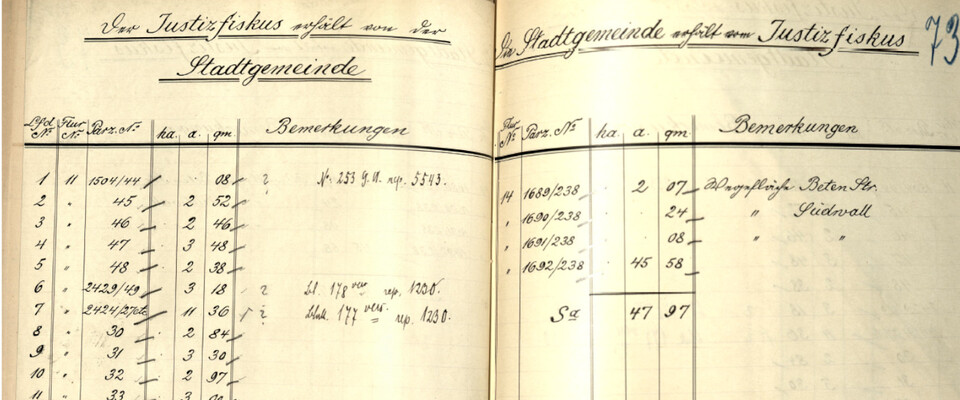 Der Justizfiskus erhält von der
Stadtgemeinde
Lfd. No Flur No. Parz. No ha. a. qm. Bemerkungen
1 11 1504/44 08 ? N. 253 rep. 5543.
2 " 45 2 52
3 " 46 2 46
4 " 47 3 48
5 " 48 2 38
6 " 2429/49 3 18 ? bl. 178 rep. 1230.
7 " 2424/27 11 36 ? 177 rep. 1230.
8 " 30 2 84
9 " 31 3 30
10 " 32 2 97
11 33 3
Die Stadtgemeinde erhält vom Justizfiskus 73
Flur No Parz. No ha. a. qm. Bemerkungen
14 1689/238 2 07 Wegefläche Beten Str.
" 1690/238 24 " Südwall
" 1691/238 08 " "
" 1692/238 45 58
Sa 47 97